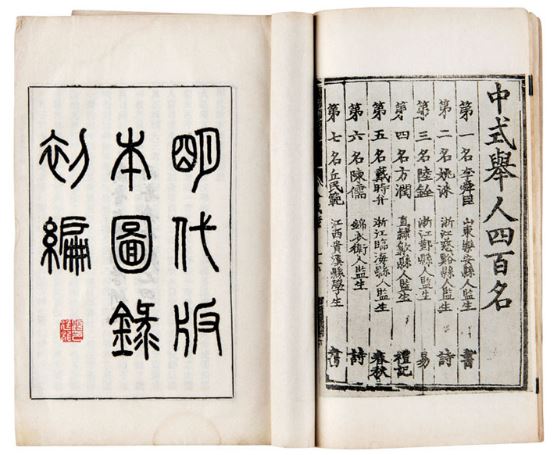 中式舉人四百名
第一名李舜臣 山東樂安縣人監生 書
第二名姚淶 浙江慈谿縣人監生 詩
第三名陸釴 浙江鄞縣人監生 易
第四名方潤 直隸歙縣人監生 禮記
第五名戴時弁 浙江臨海縣人監生 春秋
第六名陳儒 錦衣衛人監生 詩
第七名丘民範 江西貴溪縣學生 書
明代版
本圖錄
初編